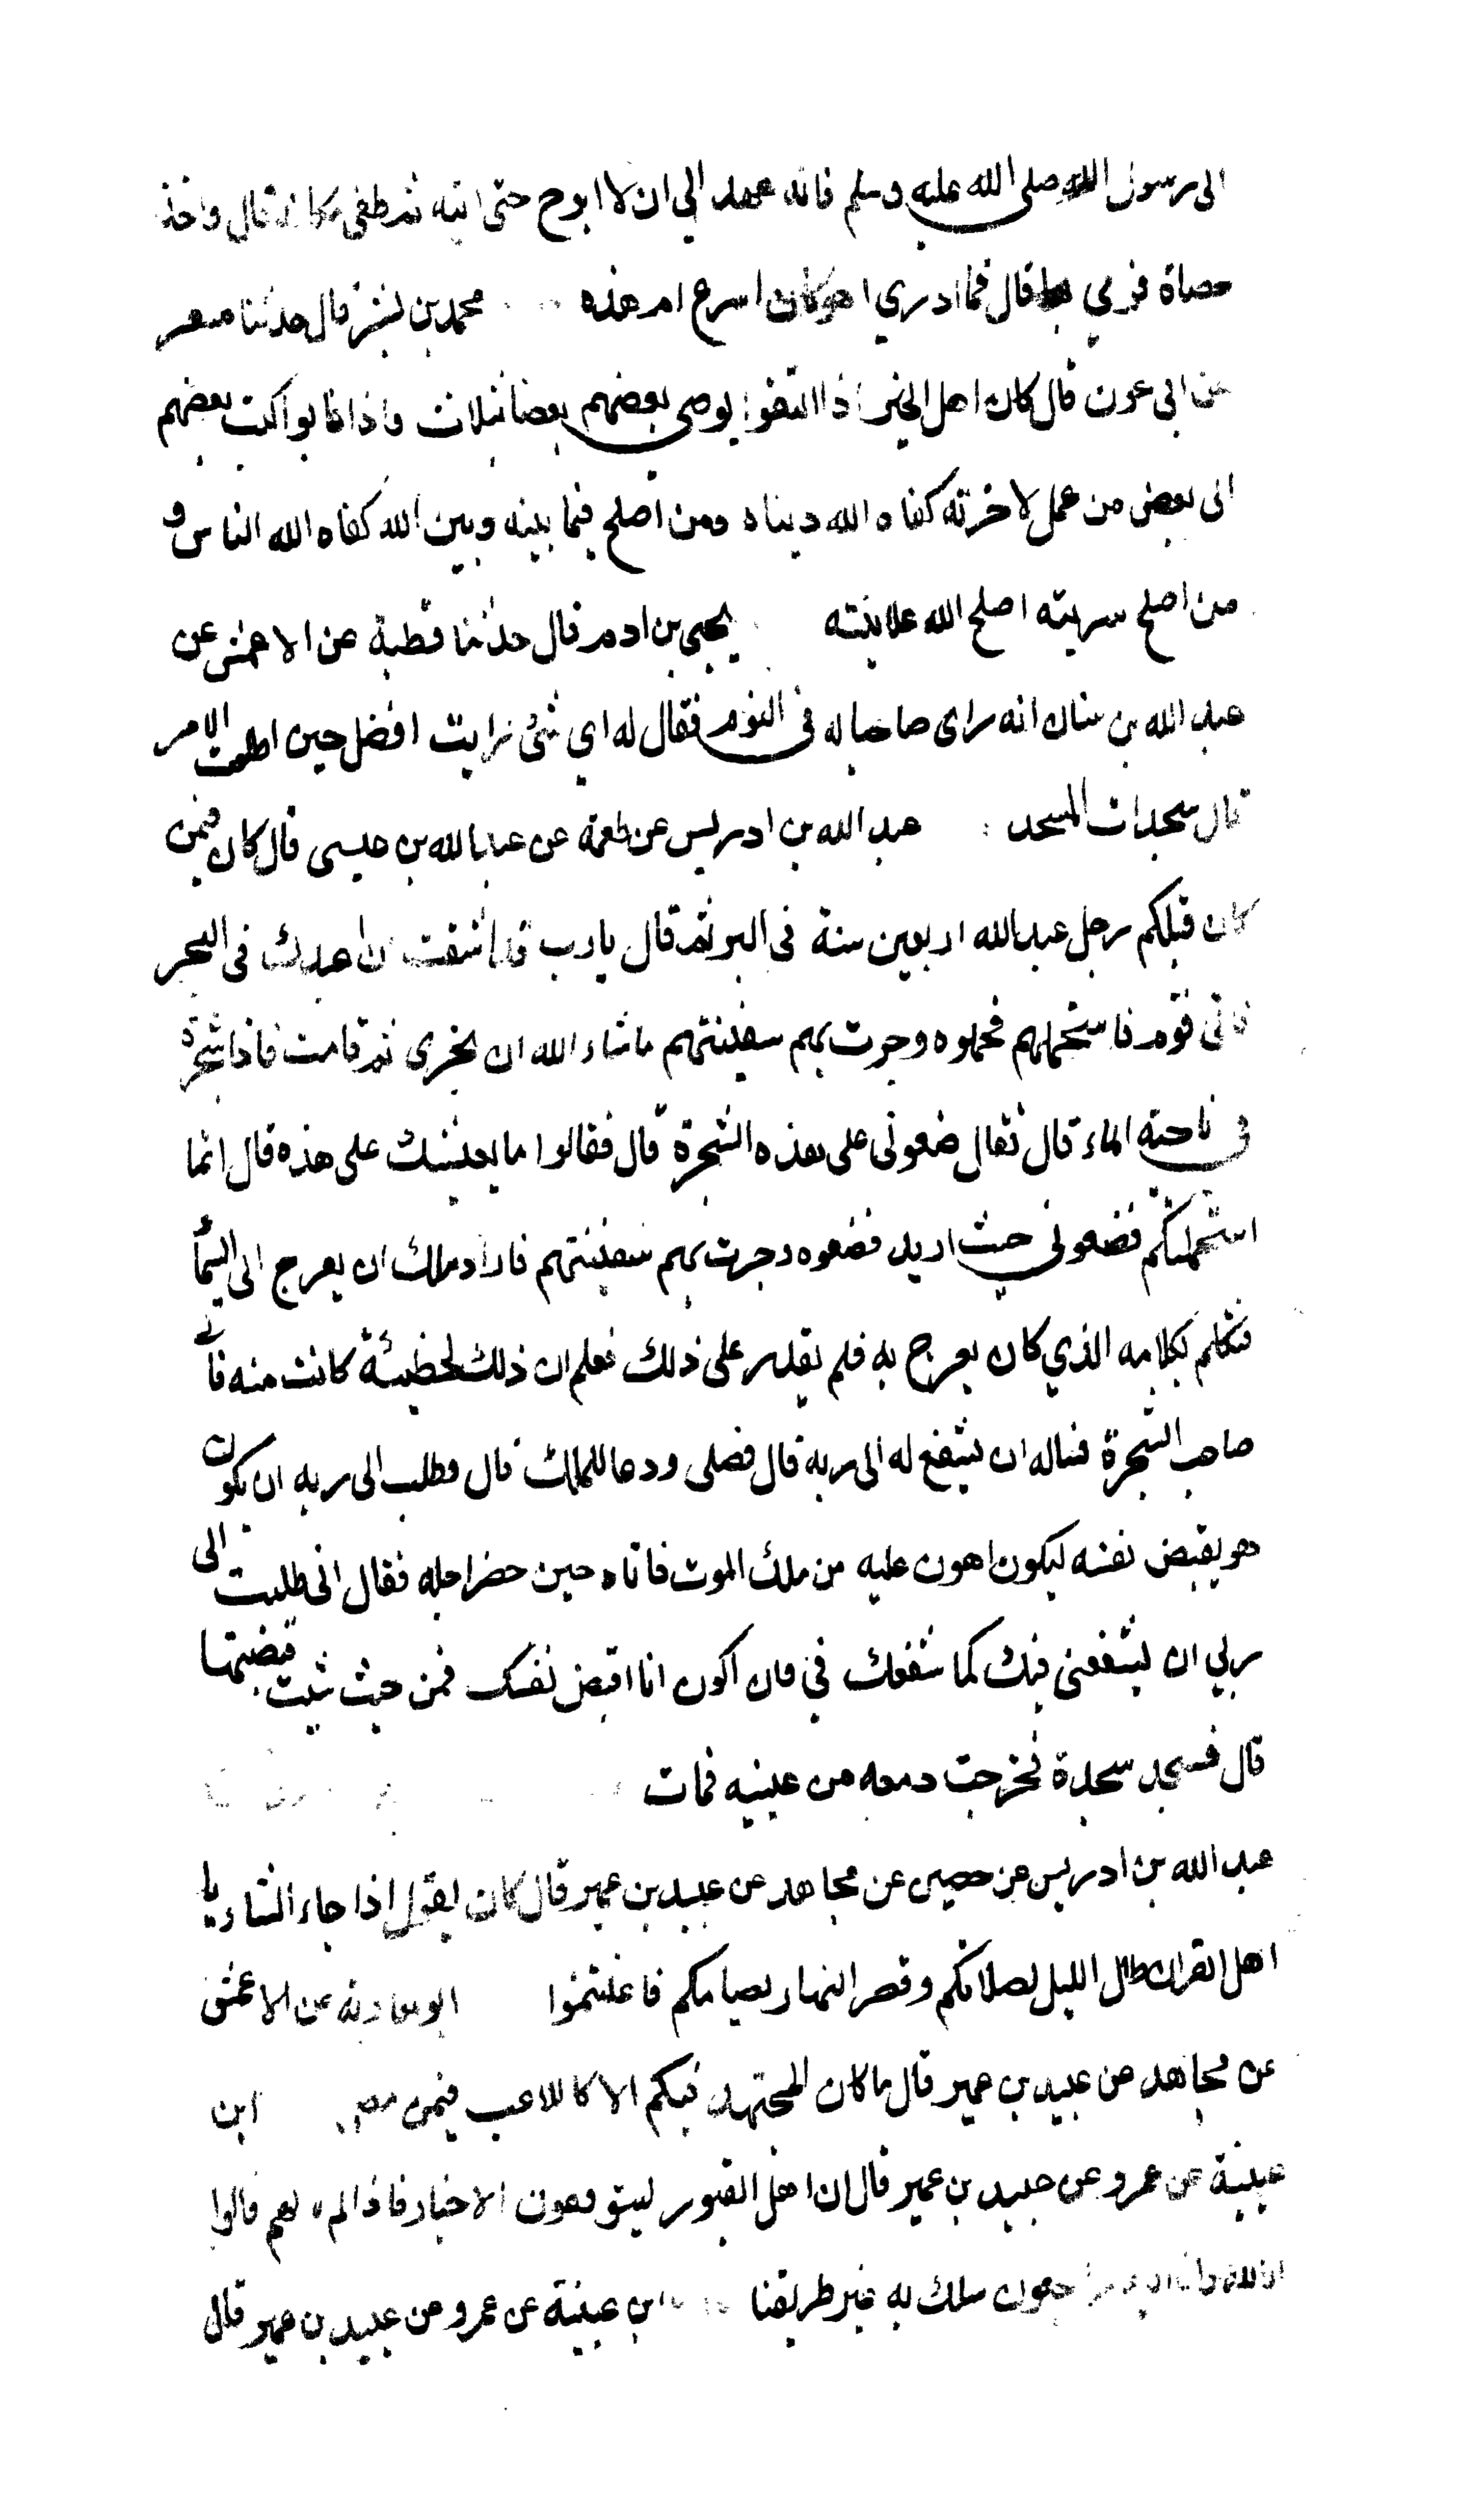 الى رسول الله صلى الله عليه وسلم فانه عهد الي ان لا ابرح حتى اتيه ثم طفى مكانه قال واخذ
حصاة فرمي بها قال فما ادري اهو كان اسرع ام هذه محمد بن بشر قال حدثنا مسعر
عن ابى عون قال كان اهل الخير اذا التقوا يوصى بعضهم بعضا بثلاث واذا غابوا كتب بعضهم
الى بعض من عمل لاخرته كفاه الله دنياه ومن اصلح فيما بينه وبين الله كفاه الله الناس و
من اصلح سريرته اصلح الله علانيته يحيى بن ادم قال حدثنا قطبة عن الاعمش عن
عبد الله بن سنان انه راى صاحبا له فى النوم فقال له اي شئ رايت افضل حين اطلعت الامر
قال سجدات المسجد عبد الله بن ادريس عن طعمة عن عبد الله بن عيسى قال كان فيمن
كان قبلكم رجل عبد الله اربعين سنة فى البر ثم قال يارب قد اشتقت ان اعبدك فى البحر
فاتى قوم فاستحملهم فحملوه وجرت بهم سفينتهم ماشاء الله ان تجرى ثم قامت فاذا شجرة
فى ناحية الماء قال فقال ضعونى على هذه الشجرة قال فقالوا ما يعيشك على هذه قال انما
استحملتكم فضعونى حيث اريد فضعوه وجرت بهم سفينتهم فاراد ملك ان يعرج الى السماء
فتكلم بكلامه الذي كان يعرج به فلم يقدر على ذلك فعلم ان ذلك لخطيئة كانت منه فاتى
صاحب الشجرة فساله ان يشفع له الى ربه قال فصلى ودعا للملك قال وطلب الى ربه ان يكون
هو يقبض نفسه ليكون اهون عليه من ملك الموت فاتاه حين حضر اجله فقال انى طلبت الى
ربي ان يشفعنى فيك كما شفعك في وان اكون انا اقبض نفسك فمن حيث شئت قبضتها
قال فسجد سجدة فخرجت دمعه من عينيه فمات
عبد الله بن ادريس عن حصين عن مجاهد عن عبيد بن عمير قال كان يقول اذا جاء الشتاء يا
اهل القران طال الليل لصلاتكم وقصر النهار لصيامكم فاغتنموا ابو معاوية عن الاعمش
عن مجاهد عن عبيد بن عمير قال ما كان المجتهد فيكم الا كاللاعب فيمن مضى ابن
عيينة عن عمرو عن عبيد بن عمير قال ان اهل القبور ليتوقعون الاخبار فاذا لم قالوا
انا لله وانا اليه راجعون سلك به غير طريقنا ابن عيينة عن عمرو عن عبيد بن عمير قال